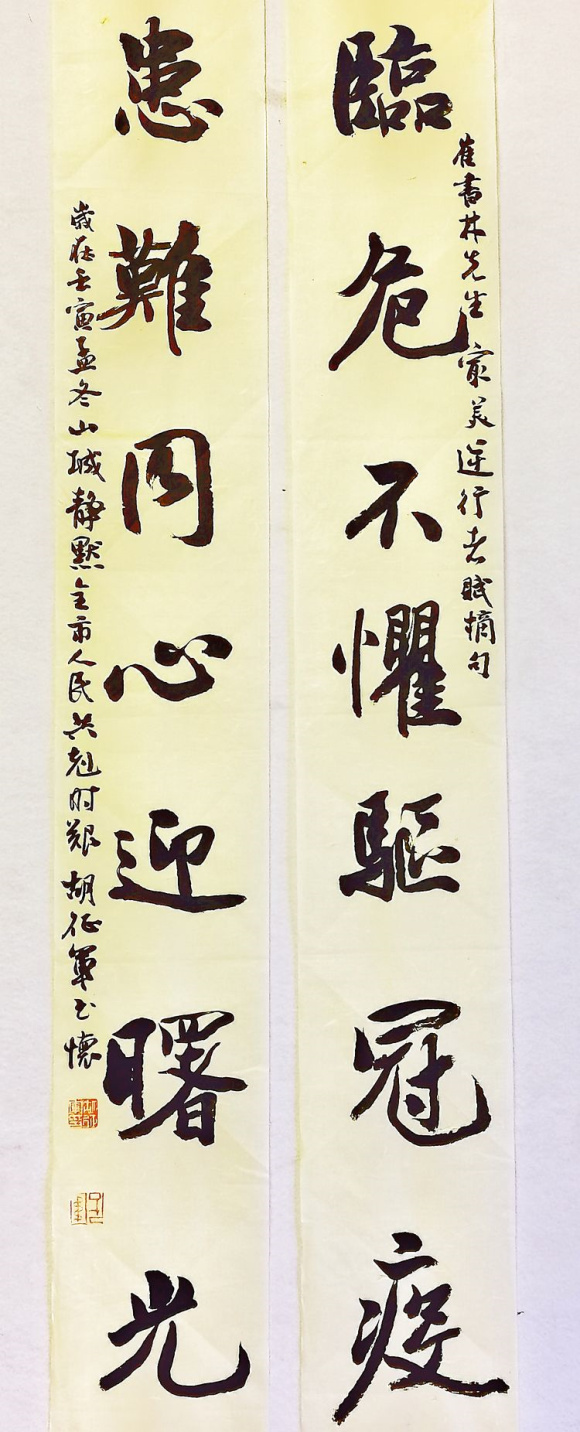 臨危不懼驅冠疫
崔書林先生 最美逆行者賦摘句
患難同心迎曙光
歲在壬寅孟冬山城靜默全市人民共克时艱 胡征軍書懷